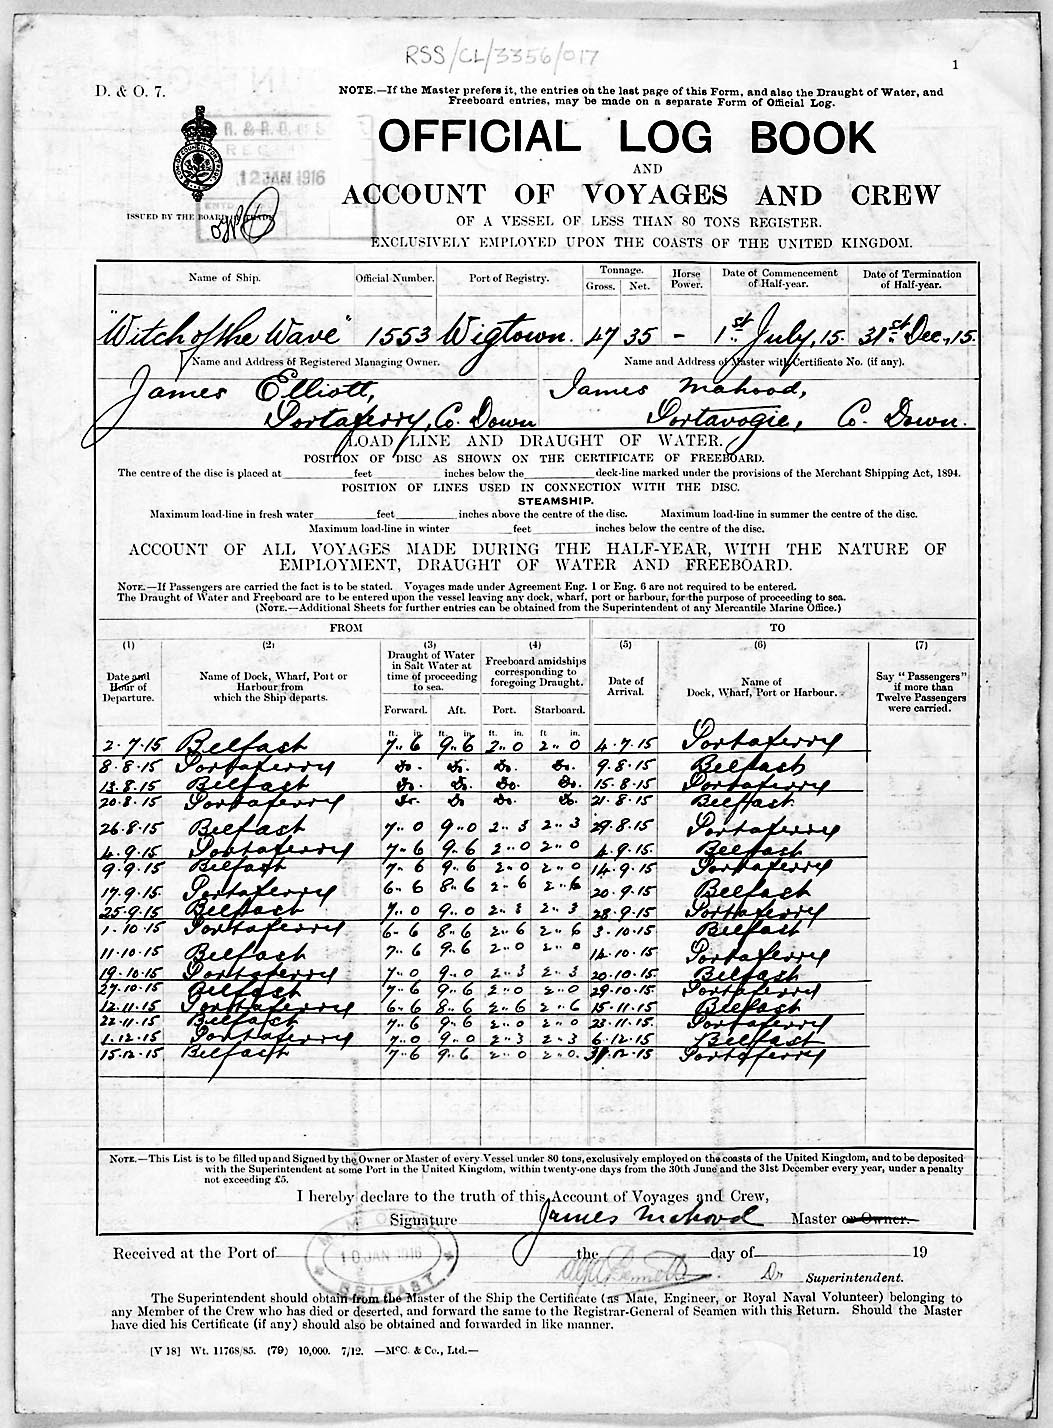 RSS/CL/3356/017
1
D. & O. 7.
NOTE.—If the Master prefers it, the entries on the last page of this Form, and also the Draught of Water, and
Freeboard entries, may be made on a separate Form of Official Log.
OFFICIAL LOG BOOK
AND
ACCOUNT OF VOYAGES AND CREW
OF A VESSEL OF LESS THAN 80 TONS REGISTER.
EXCLUSIVELY EMPLOYED UPON THE COASTS OF THE UNITED KINGDOM.
12 JAN 1916
ISSUED BY THE BOARD OF TRADE
Name of Ship. Official Number. Port of Registry. Tonnage. Gross. Net. Horse Power. Date of Commencement of Half-year. Date of Termination of Half-year.
"Witch of the Wave" 1553 Wigtown. 47 35 – 1st July, 15. 31st Dec, 15.
Name and Address of Registered Managing Owner. Name and Address of Master with Certificate No. (if any).
James Elliott, James Mahood,
Portaferry, Co. Down Portavogie, Co. Down.
LOAD LINE AND DRAUGHT OF WATER.
POSITION OF DISC AS SHOWN ON THE CERTIFICATE OF FREEBOARD.
The centre of the disc is placed at feet inches below the deck-line marked under the provisions of the Merchant Shipping Act, 1894.
POSITION OF LINES USED IN CONNECTION WITH THE DISC.
STEAMSHIP.
Maximum load-line in fresh water feet inches above the centre of the disc. Maximum load-line in summer the centre of the disc.
Maximum load-line in winter feet inches below the centre of the disc.
ACCOUNT OF ALL VOYAGES MADE DURING THE HALF-YEAR, WITH THE NATURE OF
EMPLOYMENT, DRAUGHT OF WATER AND FREEBOARD.
NOTE.—If Passengers are carried the fact is to be stated. Voyages made under Agreement Eng. 1 or Eng. 6 are not required to be entered.
The Draught of Water and Freeboard are to be entered upon the vessel leaving any dock, wharf, port or harbour, for the purpose of proceeding to sea.
(NOTE.—Additional Sheets for further entries can be obtained from the Superintendent of any Mercantile Marine Office.)
FROM TO
(1) (2) (3) (4) (5) (6) (7)
Date and Hour of Departure. Name of Dock, Wharf, Port or Harbour from which the Ship departs. Draught of Water in Salt Water at time of proceeding to sea. Freeboard amidships corresponding to foregoing Draught. Date of Arrival. Name of Dock, Wharf, Port or Harbour. Say "Passengers" if more than Twelve Passengers were carried.
Forward. Aft. Port. Starboard.
ft. in. ft. in. ft. in. ft. in.
2.7.15 Belfast 7.. 6 9.. 6 2.. 0 2.. 0 4.7.15 Portaferry
8.8.15 Portaferry Do. Do. Do. Do. 9.8.15 Belfast
13.8.15 Belfast Do. Do. Do. Do. 15.8.15 Portaferry
20.8.15 Portaferry Do. Do Do. Do. 21.8.15 Belfast
26.8.15 Belfast 7.. 0 9.. 0 2.. 3 2.. 3 29.8.15 Portaferry
4.9.15 Portaferry 7.. 6 9.. 6 2.. 0 2.. 0 4.9.15 Belfast
9.9.15 Belfast 7.. 6 9.. 6 2.. 0 2.. 0 14.9.15 Portaferry
17.9.15 Portaferry 6.. 6 8.. 6 2.. 6 2.. 6 20.9.15 Belfast
25.9.15 Belfast 7.. 0 9.. 0 2.. 3 2.. 3 28.9.15 Portaferry
1.10.15 Portaferry 6.. 6 8.. 6 2.. 6 2.. 6 3.10.15 Belfast
11.10.15 Belfast 7.. 6 9.. 6 2.. 0 2.. 0 14.10.15 Portaferry
19.10.15 Portaferry 7.. 0 9.. 0 2.. 3 2.. 3 20.10.15 Belfast
27.10.15 Belfast 7.. 6 9.. 6 2.. 0 2.. 0 29.10.15 Portaferry
12.11.15 Portaferry 6.. 6 8.. 6 2.. 6 2.. 6 15.11.15 Belfast
22.11.15 Belfast 7.. 6 9.. 6 2.. 0 2.. 0 23.11.15 Portaferry
1.12.15 Portaferry 7.. 0 9.. 0 2.. 3 2.. 3 6.12.15 Belfast
15.12.15 Belfast 7.. 6 9.. 6 2.. 0 2.. 0. 31.12.15 Portaferry
NOTE.—This List is to be filled up and Signed by the Owner or Master of every Vessel under 80 tons, exclusively employed on the coasts of the United Kingdom, and to be deposited
with the Superintendent at some Port in the United Kingdom, within twenty-one days from the 30th June and the 31st December every year, under a penalty
not exceeding £5.
I hereby declare to the truth of this Account of Voyages and Crew,
Signature James Mahood Master or Owner.
Received at the Port of the day of 19
10 JAN 1916
BELFAST
Superintendent.
The Superintendent should obtain from the Master of the Ship the Certificate (as Mate, Engineer, or Royal Naval Volunteer) belonging to
any Member of the Crew who has died or deserted, and forward the same to the Registrar-General of Seamen with this Return. Should the Master
have died his Certificate (if any) should also be obtained and forwarded in like manner.
[V 18] Wt. 11768/85. (79) 10,000. 7/12. —McC. & Co., Ltd.—